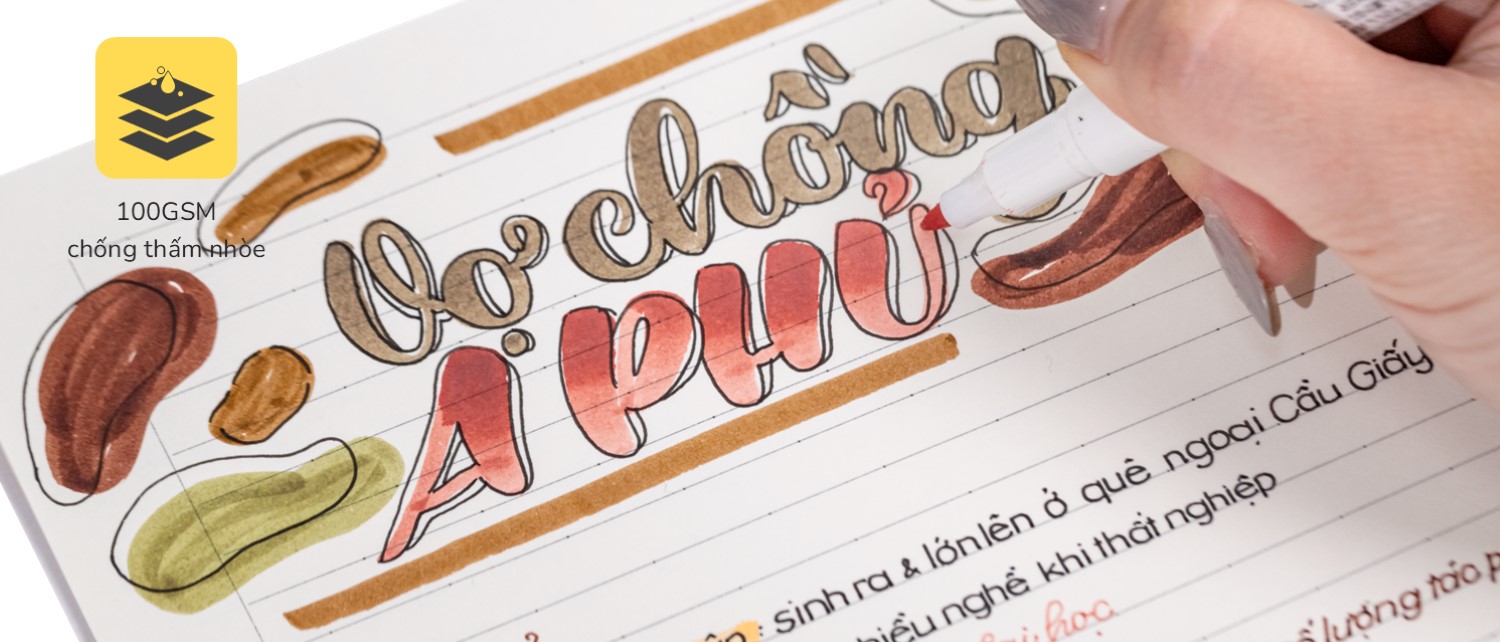 100GSM
chống thấm nhòe
Vợ chồng
A PHỦ
: sinh ra & lớn lên ở quê ngoại Cầu Giấy
nghề khi thất nghiệp
học
lương tào